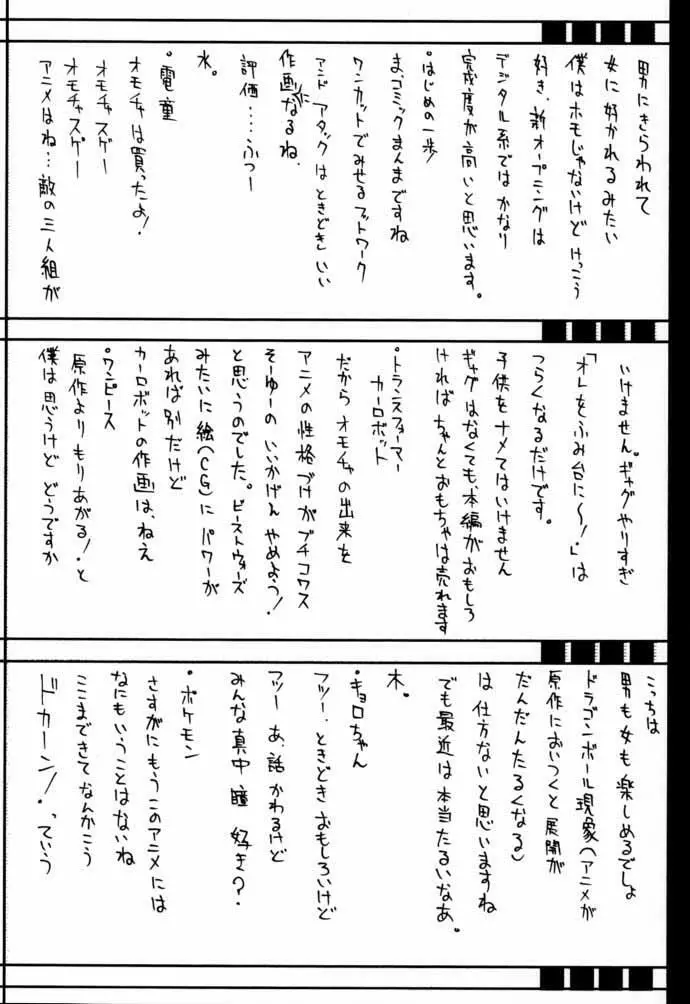 男にきらわれて
女に好かれるみたい
僕はホモじゃないけど けっこう
好き、新オープニングは
デジタル系では かなり
完成度が高いと思います。
・はじめの一歩
ま、コミックまんまですね
ワンカットでみせるフットワーク
アンド アタックは ときどき いい
作画になるね、
評価……ふつー
水。
・電童
オモチャは買ったよ!
オモチャスゲー
オモチャスゲー
アニメはね…敵の三人組が
いけません。ギャグやりすぎ
「オレをふみ台に〜!」は
つらくなるだけです。
子供をナメてはいけません
ギャグはなくても、本編がおもしろ
ければ ちゃんとおもちゃは売れます
・トランスフォーマー
カーロボット
だから オモチャの出来を
アニメの性格づけが ブチコワス
そーゆーの いいかげん やめよう!
と思うのでした。ビーストウォーズ
みたいに絵(CG)に パワーが
あれば別だけど
カーロボットの作画は、ねえ
・ワンピース
原作よりもりあがる!と
僕は思うけど どうですか
こっちは
男も女も楽しめるでしょ
ドラゴンボール現象(アニメが
原作においつくと展開が
だんだんたるくなる)
は 仕方ないと思いますね
でも最近は本当たるいなあ。
木。
・キョロちゃん
フツー、ときどき おもしろいけど
フツー あ、話 かわるけど
みんな真中 瞳 好き?
・ポケモン
さすがにもうこのアニメには
なにもいうことはないね
ここまできてなんかこう
ドカーン!っていう